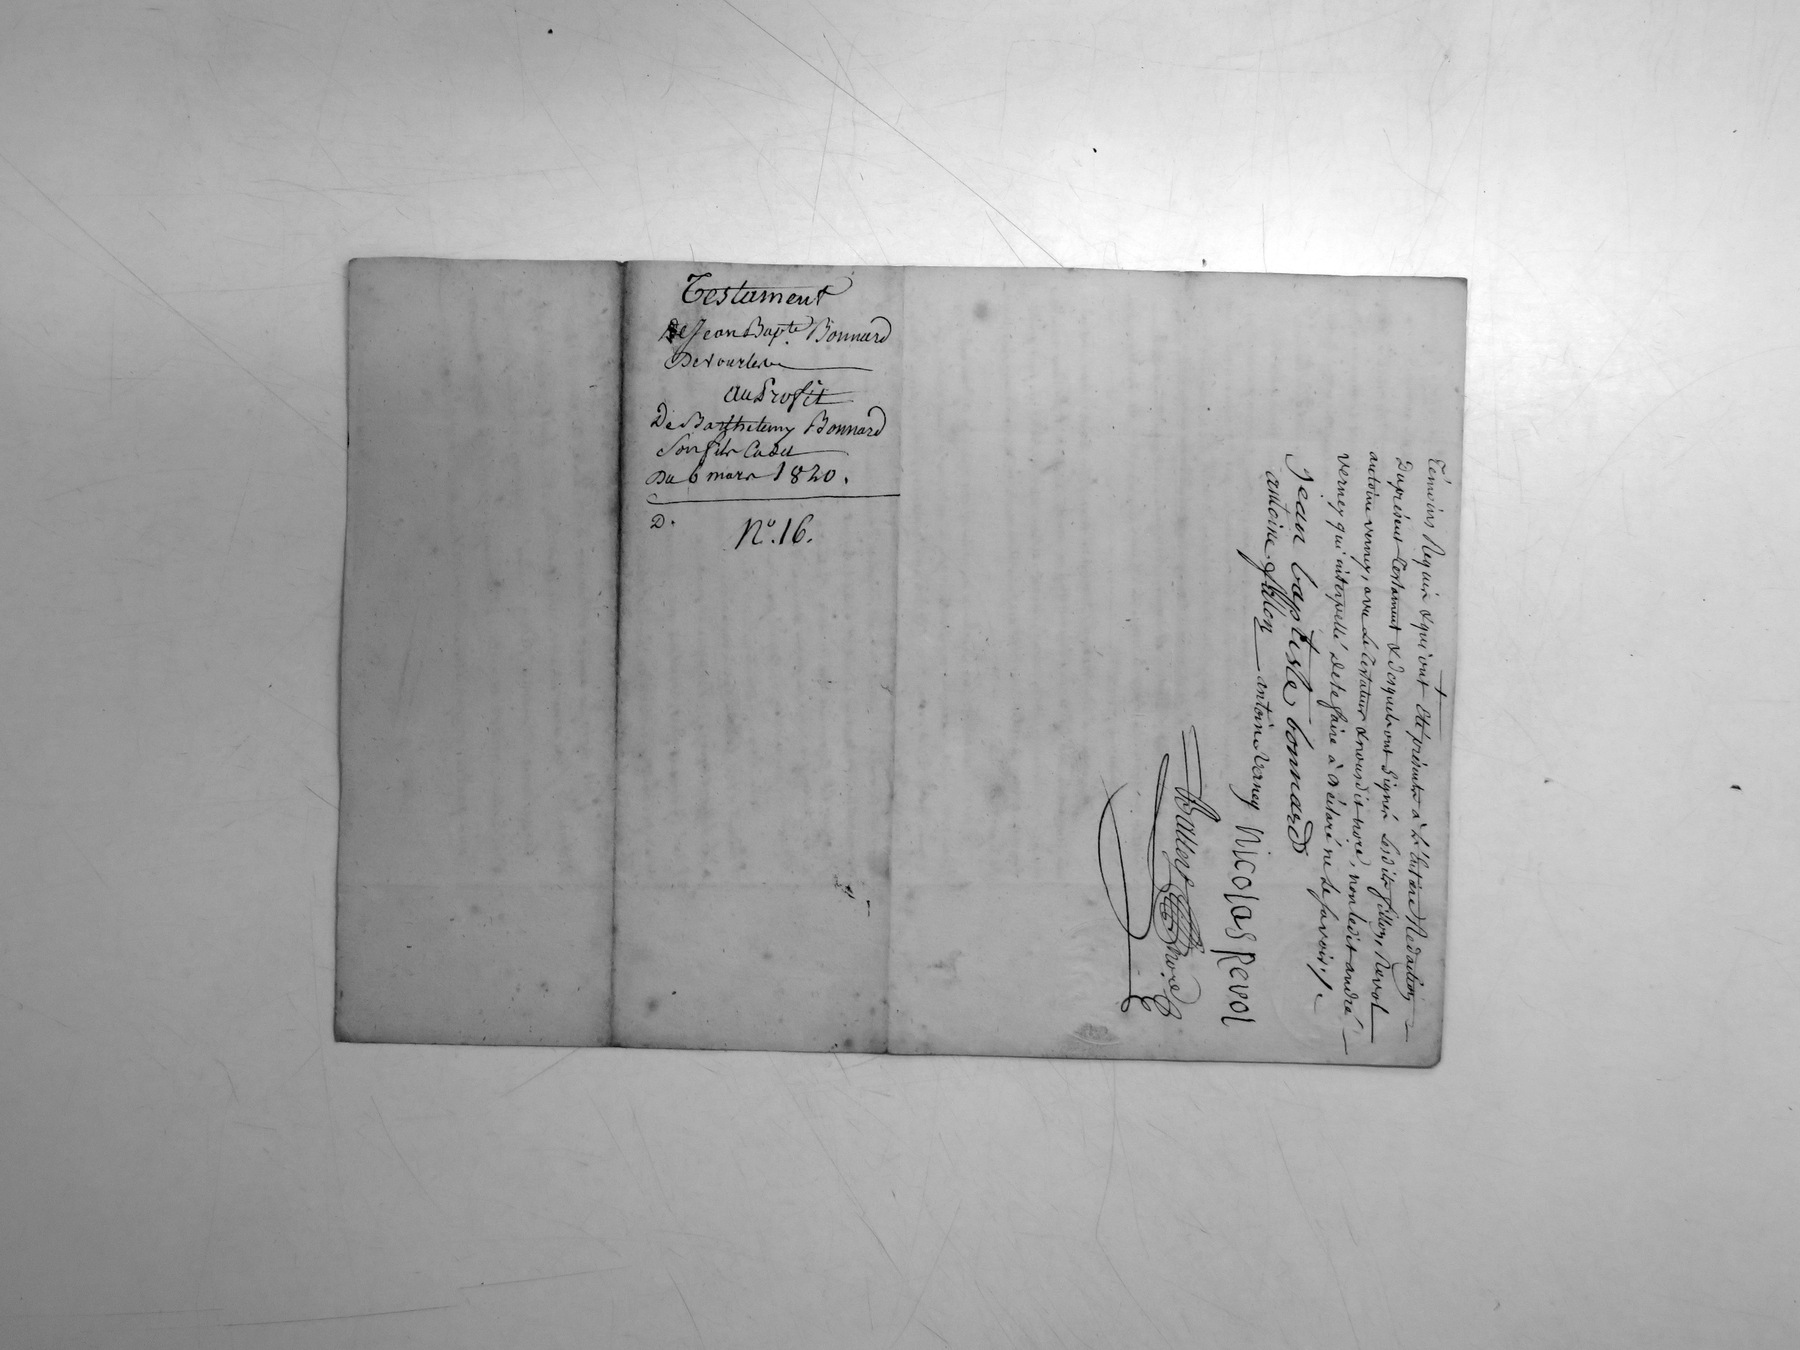 Testament
De Jean Bapte. Bonnard
De vourles
Au Profit
De Barthelemy Bonnard
Son fils Cadet
Du 6 mars 1820.
D.
N°. 16.
Témoins Requis & qui ont Eté présents à l'Entière Rédaction
Du présent testament & desquels ont signés lesdits fillon, Revol
antoine verney, avec le testateur & nousdit nore, non ledit andré
verney qui interpellé de le faire à déclaré ne le savoir ./.
jean baptiste bonnard
antoine fillon antoine Verney Nicolas Revol
nore